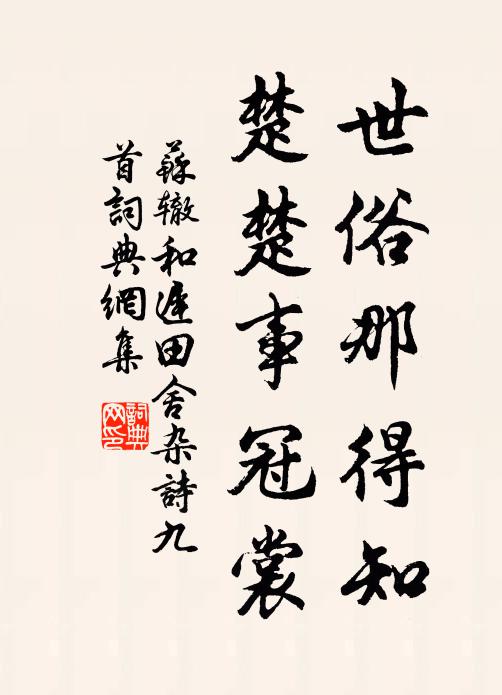 世俗那得知
楚楚事冠裳
蘇辙和遲田舍杂詩九
首詞典網集
詞典网印